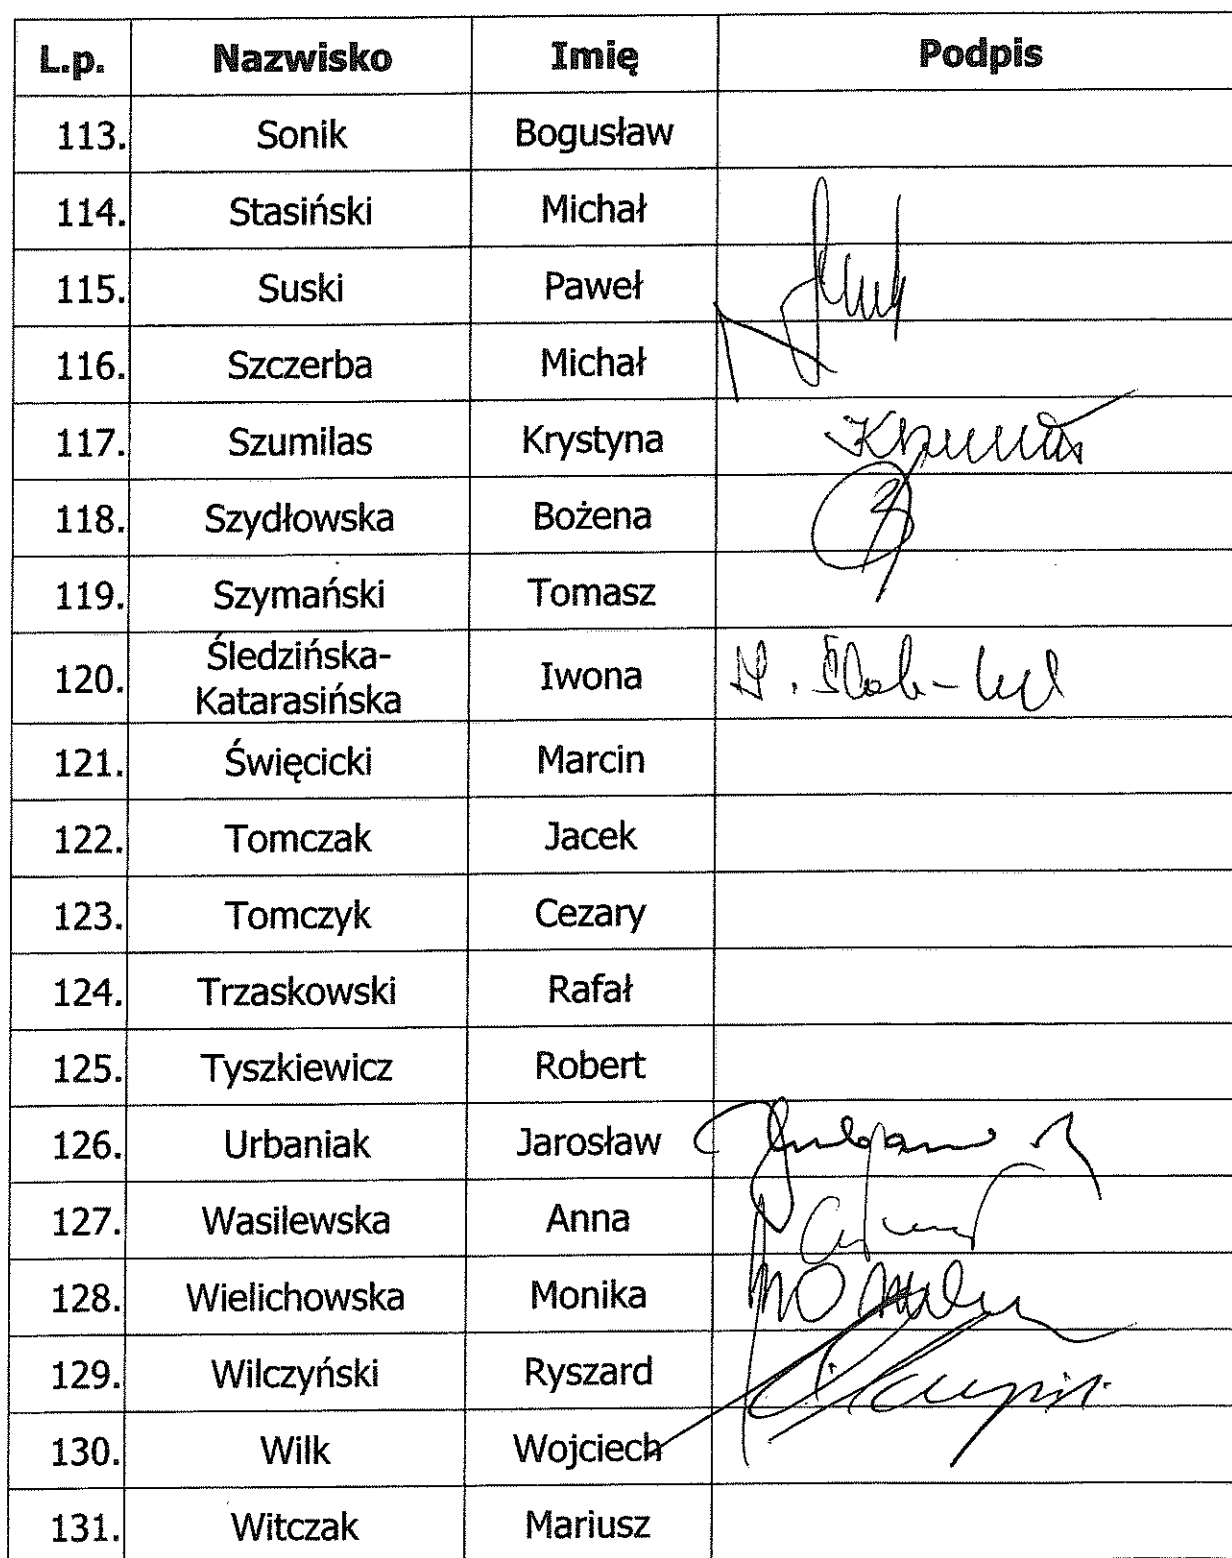 L.p. Nazwisko Imię Podpis
113. Sonik Bogusław
114. Stasiński Michał
115. Suski Paweł
116. Szczerba Michał
117. Szumilas Krystyna
118. Szydłowska Bożena
119. Szymański Tomasz
120. Śledzińska-
Katarasińska Iwona
121. Święcicki Marcin
122. Tomczak Jacek
123. Tomczyk Cezary
124. Trzaskowski Rafał
125. Tyszkiewicz Robert
126. Urbaniak Jarosław
127. Wasilewska Anna
128. Wielichowska Monika
129. Wilczyński Ryszard
130. Wilk Wojciech
131. Witczak Mariusz